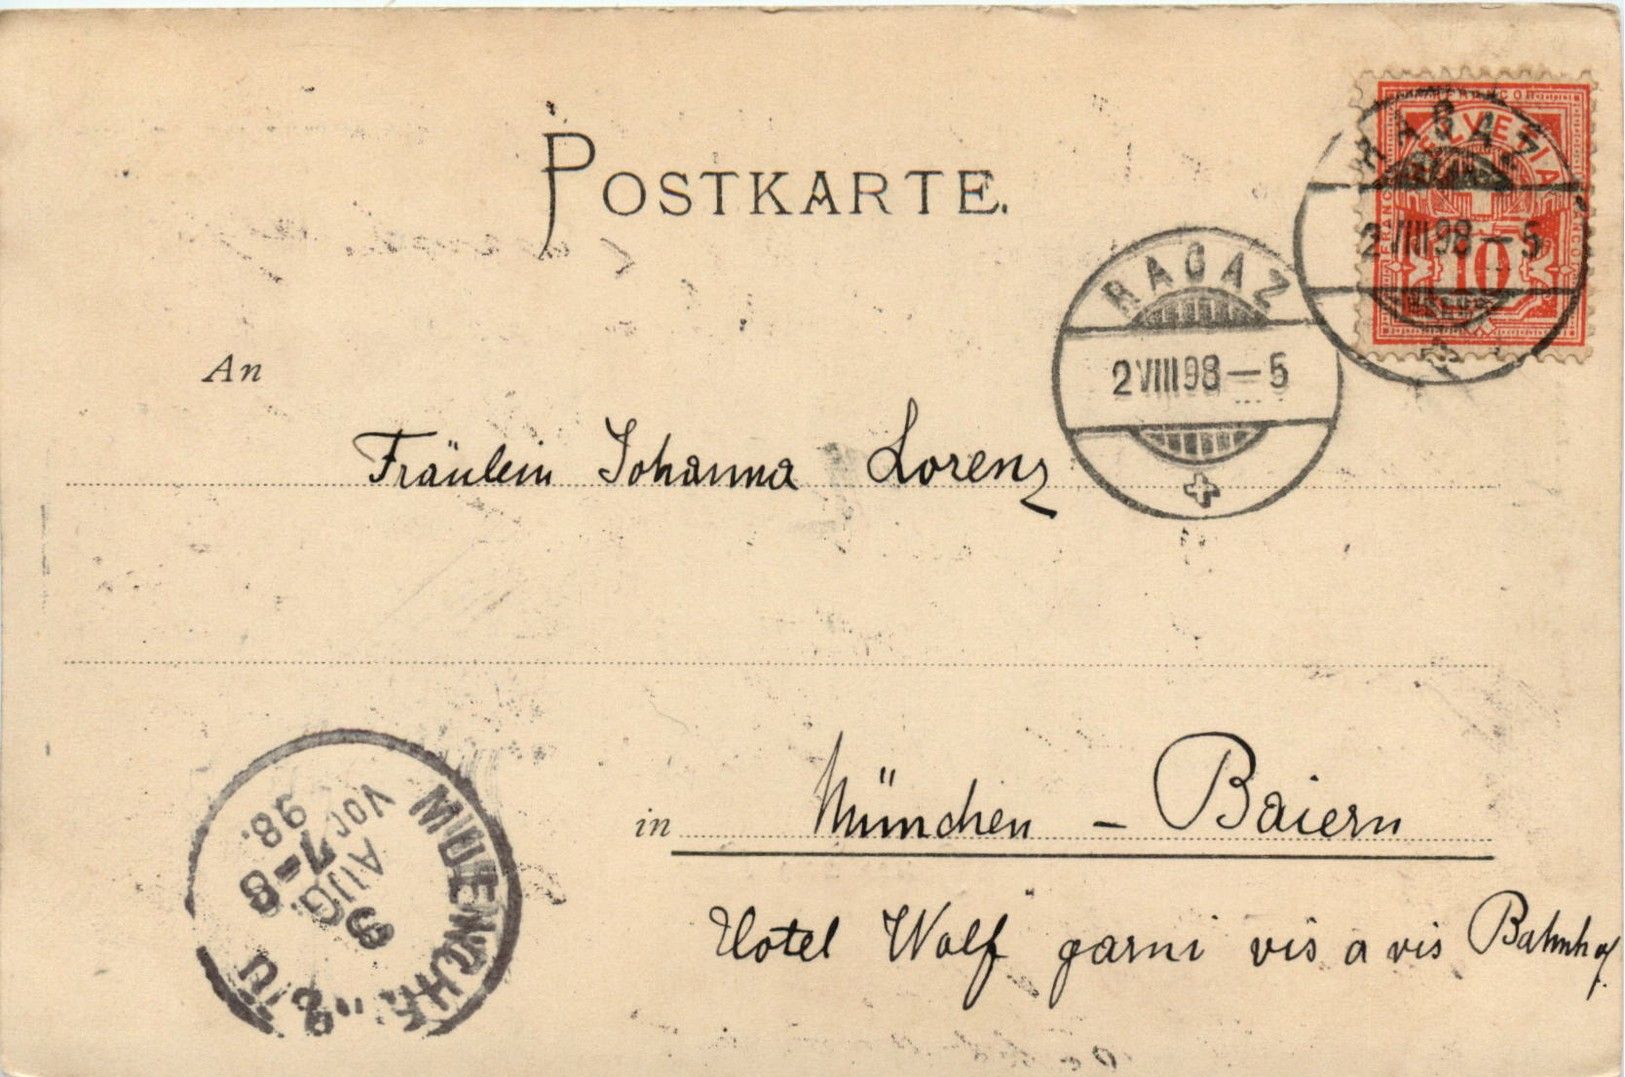 POSTKARTE.
HELVETIA
10
RAGAZ
2 VIII 98 — 5
RAGAZ
2 VIII 98 — 5
An
Fräulein Johanna Lorenz
in München – Baiern
Hotel Wolf garni vis a vis Bahnhof
MUENCHEN
AUG.
7-8
Vor
98.